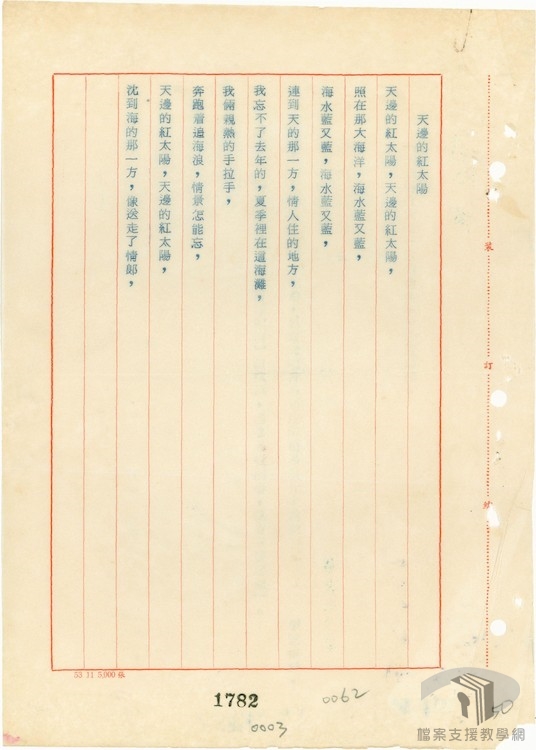 天邊的紅太陽
天邊的紅太陽，天邊的紅太陽，
照在那大海洋，海水藍又藍，
海水藍又藍，海水藍又藍，
連到天的那一方，情人住的地方，
我忘不了去年的，夏季裡在這海灘，
我倆親熱的手拉手，
奔跑着追海浪，情景怎能忘，
天邊的紅太陽，天邊的紅太陽，
沈到海的那一方，像送走了情郎，
裝
訂
線
53 11 5,000 張
1782
0062
0003
50
檔案支援教學網